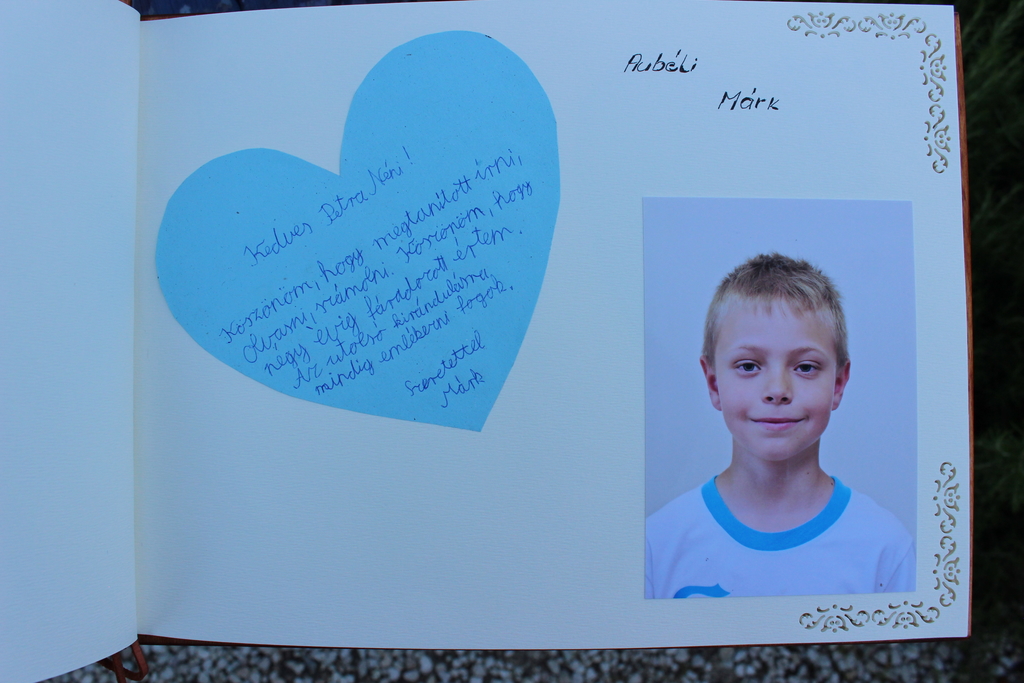 Kedves Petra Néni!
Köszönöm, hogy megtanított írni,
Olvasni, számolni. Köszönöm, hogy
négy évig fáradozott értem.
Az utolsó kirándulásra,
mindig emlékezni fogok.
Szeretettel
Márk
Aubéli
Márk